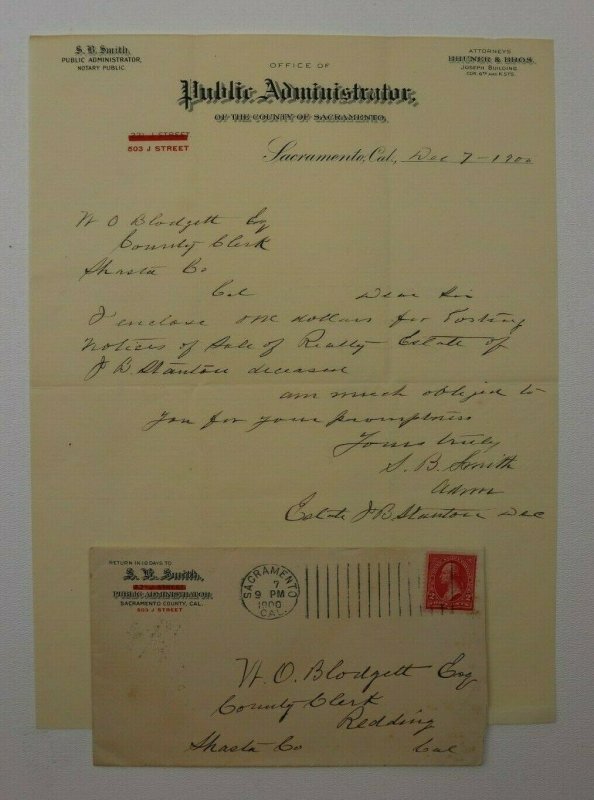 S. B. Smith,
PUBLIC ADMINISTRATOR,
NOTARY PUBLIC
OFFICE OF
Public Administrator,
OF THE COUNTY OF SACRAMENTO,
ATTORNEYS
BRUNER & BROS.
JOSEPH BUILDING
COR. 6TH AND K STS.
J STREET
803 J STREET
Sacramento, Cal., Dec 7 - 1900
W O Blodgett Esq
County Clerk
Shasta Co
Cal Dear Sir
I enclose one dollars for Posting
Notices of Sale of Realty Estate of
J B. Stanton deceased
am much obliged to
you for your promptness
Yours truly
S. B. Smith
Admr
Estate J B. Stanton Dec
RETURN IN 10 DAYS TO
S. B. Smith,
PUBLIC ADMINISTRATOR
SACRAMENTO COUNTY, CAL.
803 J STREET
SACRAMENTO
7
9 PM
1900
CAL.
W. O. Blodgett Esq
County Clerk
Redding
Shasta Co Cal